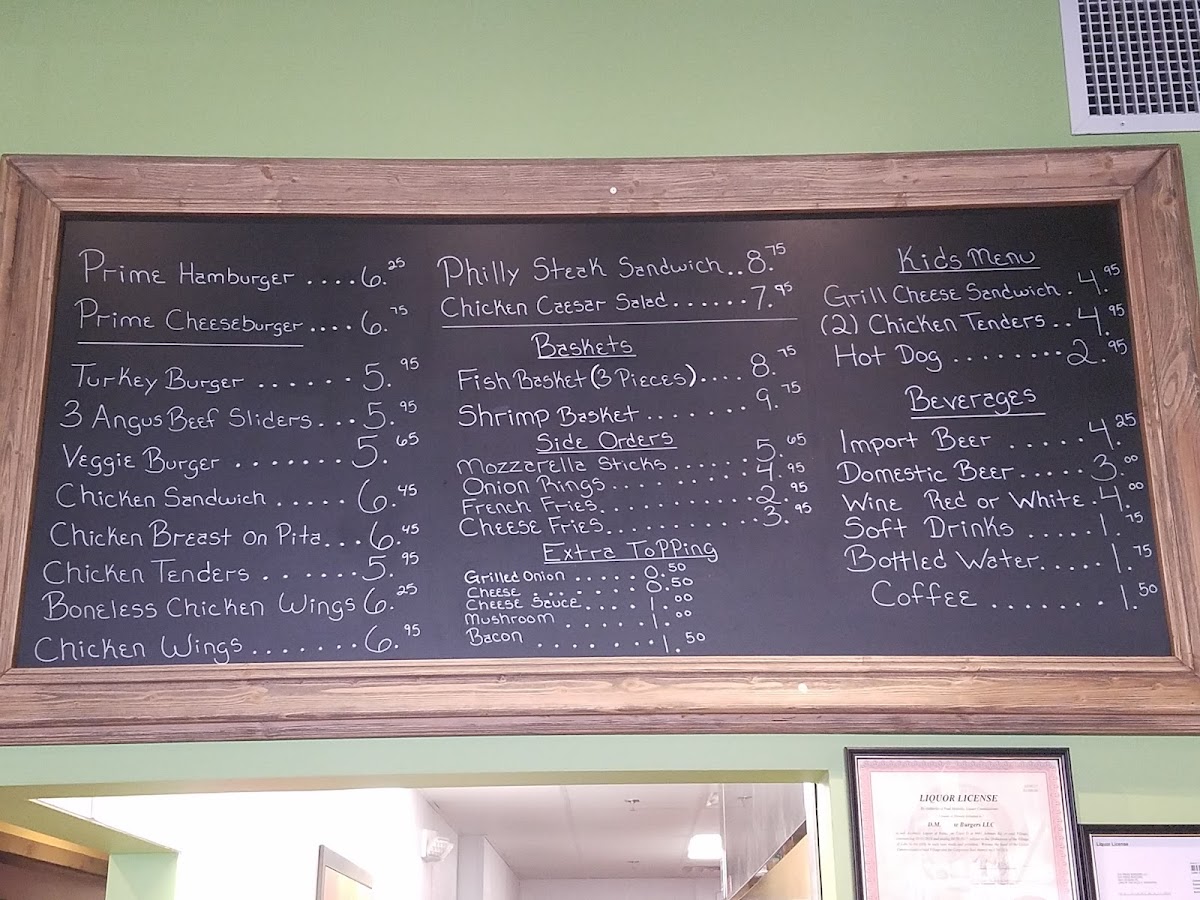 Prime Hamburger ....6.25
Prime Cheeseburger ....6.75
Turkey Burger ......5.95
3 Angus Beef Sliders...5.95
Veggie Burger .......5.65
Chicken Sandwich .....6.45
Chicken Breast on Pita...6.45
Chicken Tenders .......5.95
Boneless Chicken Wings 6.25
Chicken Wings.......6.95
Philly Steak Sandwich..8.75
Chicken Caesar Salad.......7.95
Baskets
Fish Basket (3 Pieces)....8.75
Shrimp Basket........9.75
Side Orders
Mozzarella Sticks.......5.65
Onion Rings..........4.95
French Fries...........2.95
Cheese Fries...........3.95
Extra Topping
Grilled Onion .....0.50
Cheese .......0.50
Cheese Sauce....1.00
Mushroom ......1.00
Bacon ......1.50
Kids Menu
Grill Cheese Sandwich.4.95
(2) Chicken Tenders..4.95
Hot Dog ........2.95
Beverages
Import Beer .....4.25
Domestic Beer.....3.00
Wine Red or White.4.00
Soft Drinks .....1.75
Bottled Water.....1.75
Coffee .......1.50
LIQUOR LICENSE
Burgers LLC
Liquor License